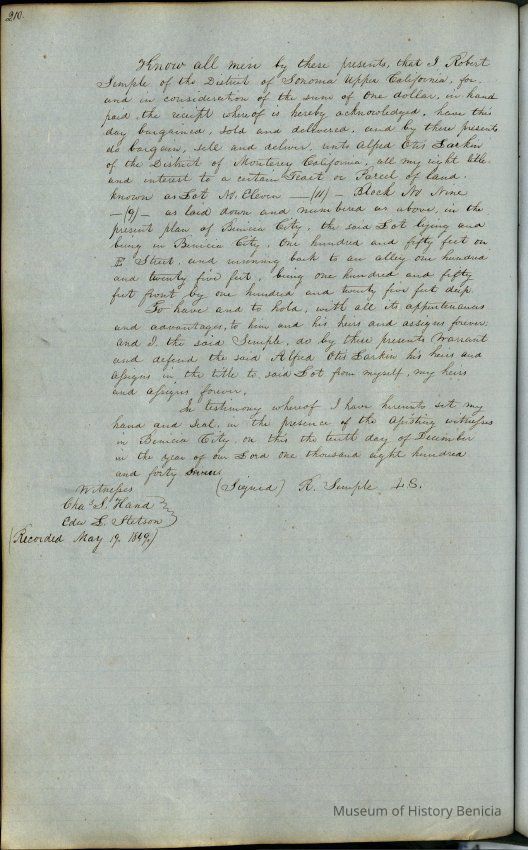 210.
Know all men by these presents, that I Robert
Semple of the District of Sonoma Upper California, for
and in consideration of the sum of One dollar, in hand
paid, the receipt whereof is hereby acknowledged, have this
day bargained, sold and delivered, and by these presents
do bargain, sell and deliver, unto Alfred Otis Larkin
of the District of Monterey California, all my right title
and interest to a certain Tract or Parcel of land
known as Lot No. Eleven — (11) — Block No None
—(9)— as laid down and numbered as above, in the
present plan of Benicia City, the said Lot lying and
being in Benicia City, One hundred and fifty feet on
E Street, and running back to an alley one hundred
and twenty five feet, being one hundred and fifty
feet front by one hundred and twenty five feet deep.
To have and to hold, with all its appurtenances
and advantages, to him and his heirs and assigns forever
and I, the said Semple, do by these presents Warrant
and defend the said Alfred Otis Larkin his heirs and
assigns in the title to said Lot from myself, my heirs
and assigns forever.
In testimony whereof I have hereunto set my
hand and seal, in the presence of the witnesses
in Benicia City, on this the tenth day of December
in the year of our Lord one thousand eight hundred
and forty seven
Witnesses (Signed) R. Semple L.S.
Chas. S. Hand
Edw L. Stetson
(Recorded May 19. 1849.)
Museum of History Benicia